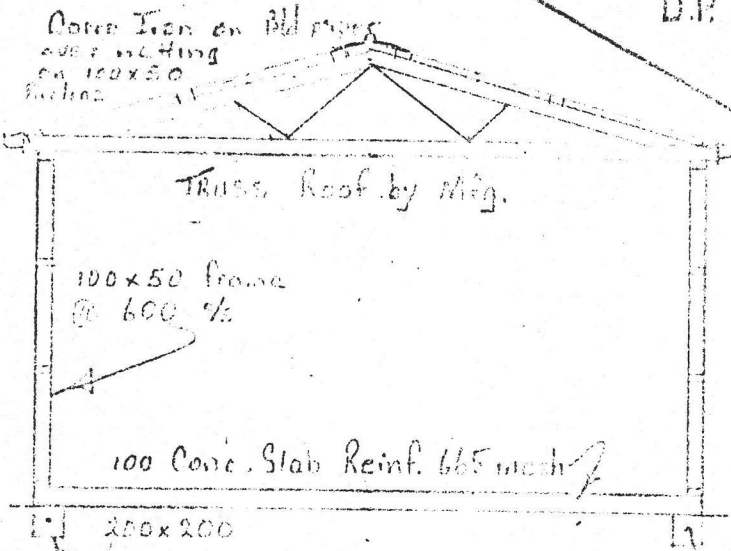 D.P.
Corro Iron on Bld paper
over netting
on 100x50
Purlins
TRUSS Roof by Mfg.
100x50 frame
@ 600 c/s
100 Conc. Slab Reinf. 665 mesh
200x200